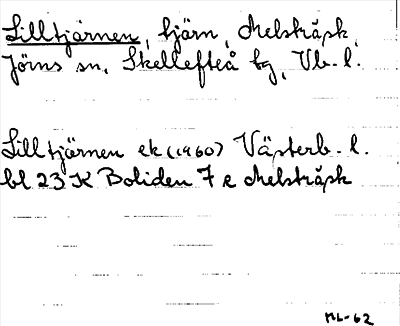 Lilltjärnen, tjärn, Melsträsk,
Jörns sn, Skellefteå tg, Vb. l.
Lilltjärnen ek (1960) Västerb. l.
bl 23 K Boliden 7 e Melsträsk
ML-62